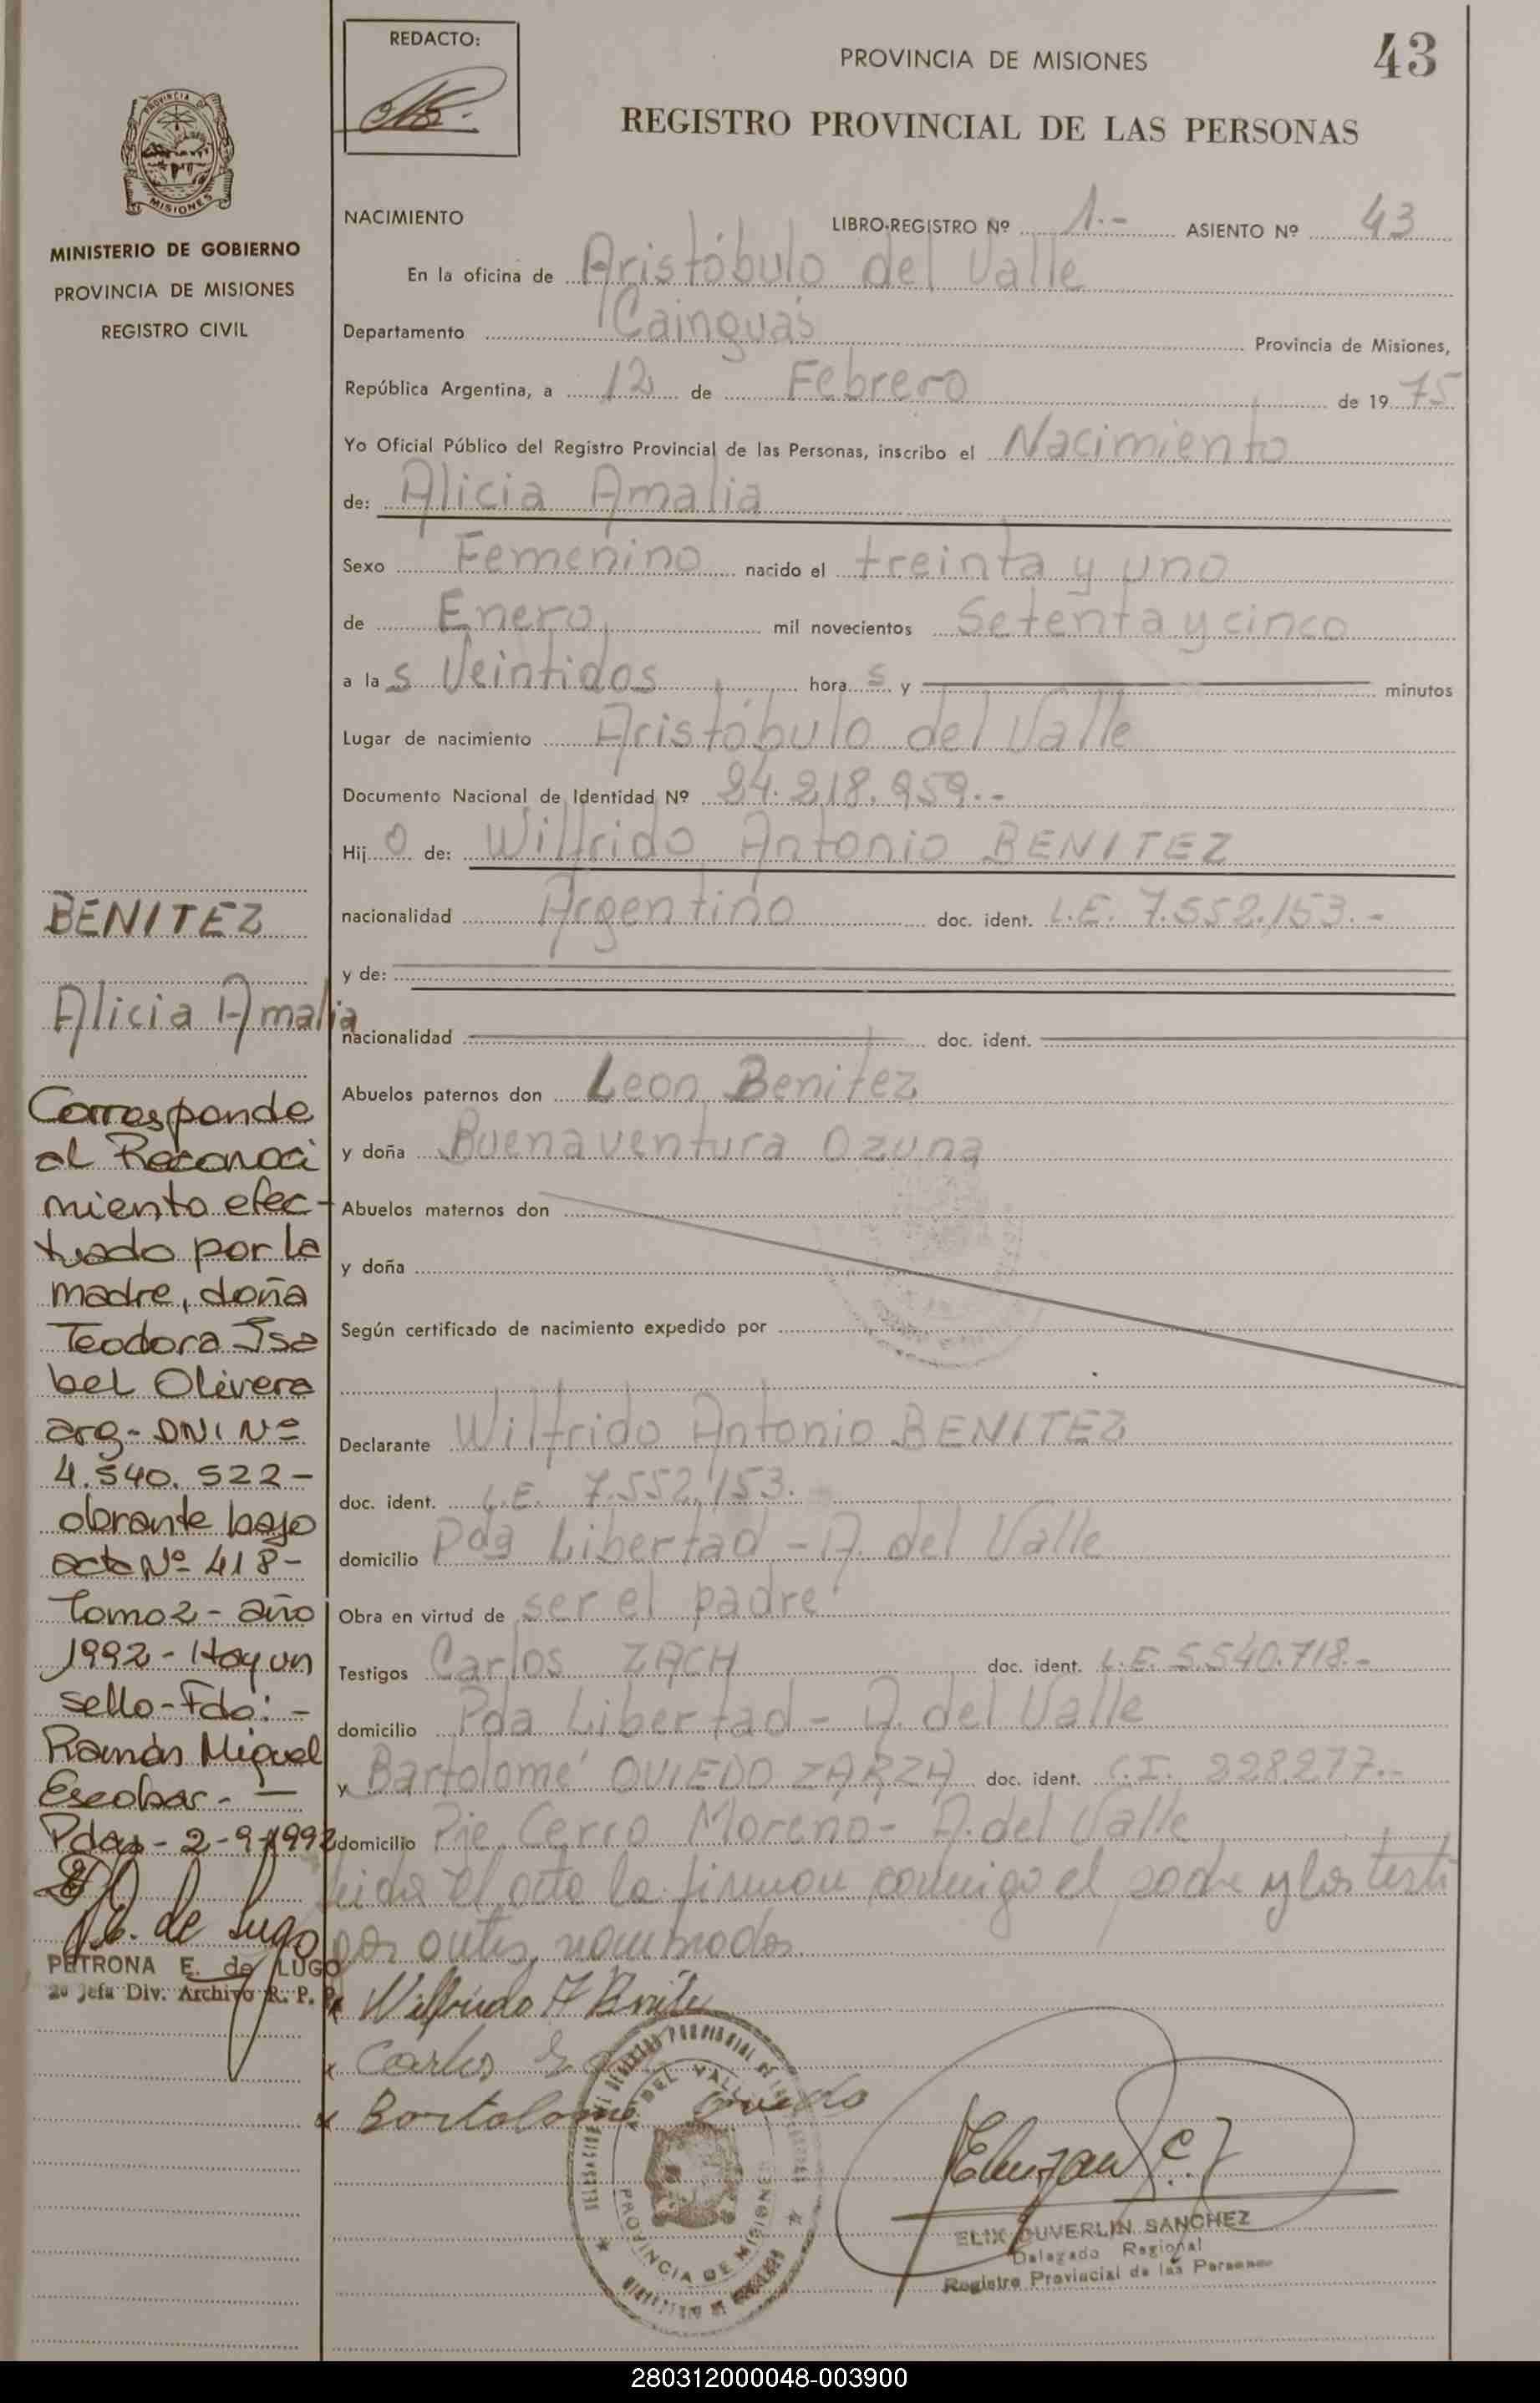 REDACTO:
PROVINCIA DE MISIONES
43
REGISTRO PROVINCIAL DE LAS PERSONAS
PROVINCIA DE
MISIONES
MINISTERIO DE GOBIERNO
PROVINCIA DE MISIONES
REGISTRO CIVIL
NACIMIENTO LIBRO-REGISTRO Nº 1.- ASIENTO Nº 43
En la oficina de Aristóbulo del Valle
Departamento Cainguás Provincia de Misiones,
República Argentina, a 12 de Febrero de 1975
Yo Oficial Público del Registro Provincial de las Personas, inscribo el Nacimiento
de: Alicia Amalia
Sexo Femenino nacido el treinta y uno
de Enero mil novecientos Setenta y cinco
a las Veintidos horas y minutos
Lugar de nacimiento Aristóbulo del Valle
Documento Nacional de Identidad Nº 24.218.959.-
Hijo de: Wilfrido Antonio BENITEZ
nacionalidad Argentino doc. ident. L.E. 7.552.153.-
y de:
nacionalidad doc. ident.
Abuelos paternos don Leon Benitez
y doña Buenaventura Ozuna
Abuelos maternos don
y doña
Según certificado de nacimiento expedido por
Declarante Wilfrido Antonio BENITEZ
doc. ident. L.E. 7.552.153.
domicilio Pda Libertad - A. del Valle
Obra en virtud de ser el padre
Testigos Carlos ZACH doc. ident. L.E. 5.540.718.-
domicilio Pda Libertad - A. del Valle
y Bartolomé OVIEDO ZARZA doc. ident. C.I. 228.277.-
domicilio Pie Cerro Moreno - A. del Valle
leida el acta la firman conmigo el padre y los testi
gos antes nombrados
Wilfrido A Benite
Carlos
Bartolome Oviedo
DEL VALLE
PROVINCIA DE MISIONES
ELIX DUVERLIN SANCHEZ
Delegado Regional
Registro Provincial de las Personas
BENITEZ
Alicia Amalia
Corresponde
al Reconoci
miento efec-
tuado por la
madre, doña
Teodora Isa
bel Olivera
arg- DNI Nº
4.540.522-
obrante bajo
acta Nº 418-
Tomo 2 - año
1992 - Hay un
sello-Fdo: -
Ramón Miguel
Escobar. -
Pdas - 2-9-1992
E. de Lugo
PETRONA E. de LUGO
2º Jefa Div. Archivo R. P. P.
280312000048-003900